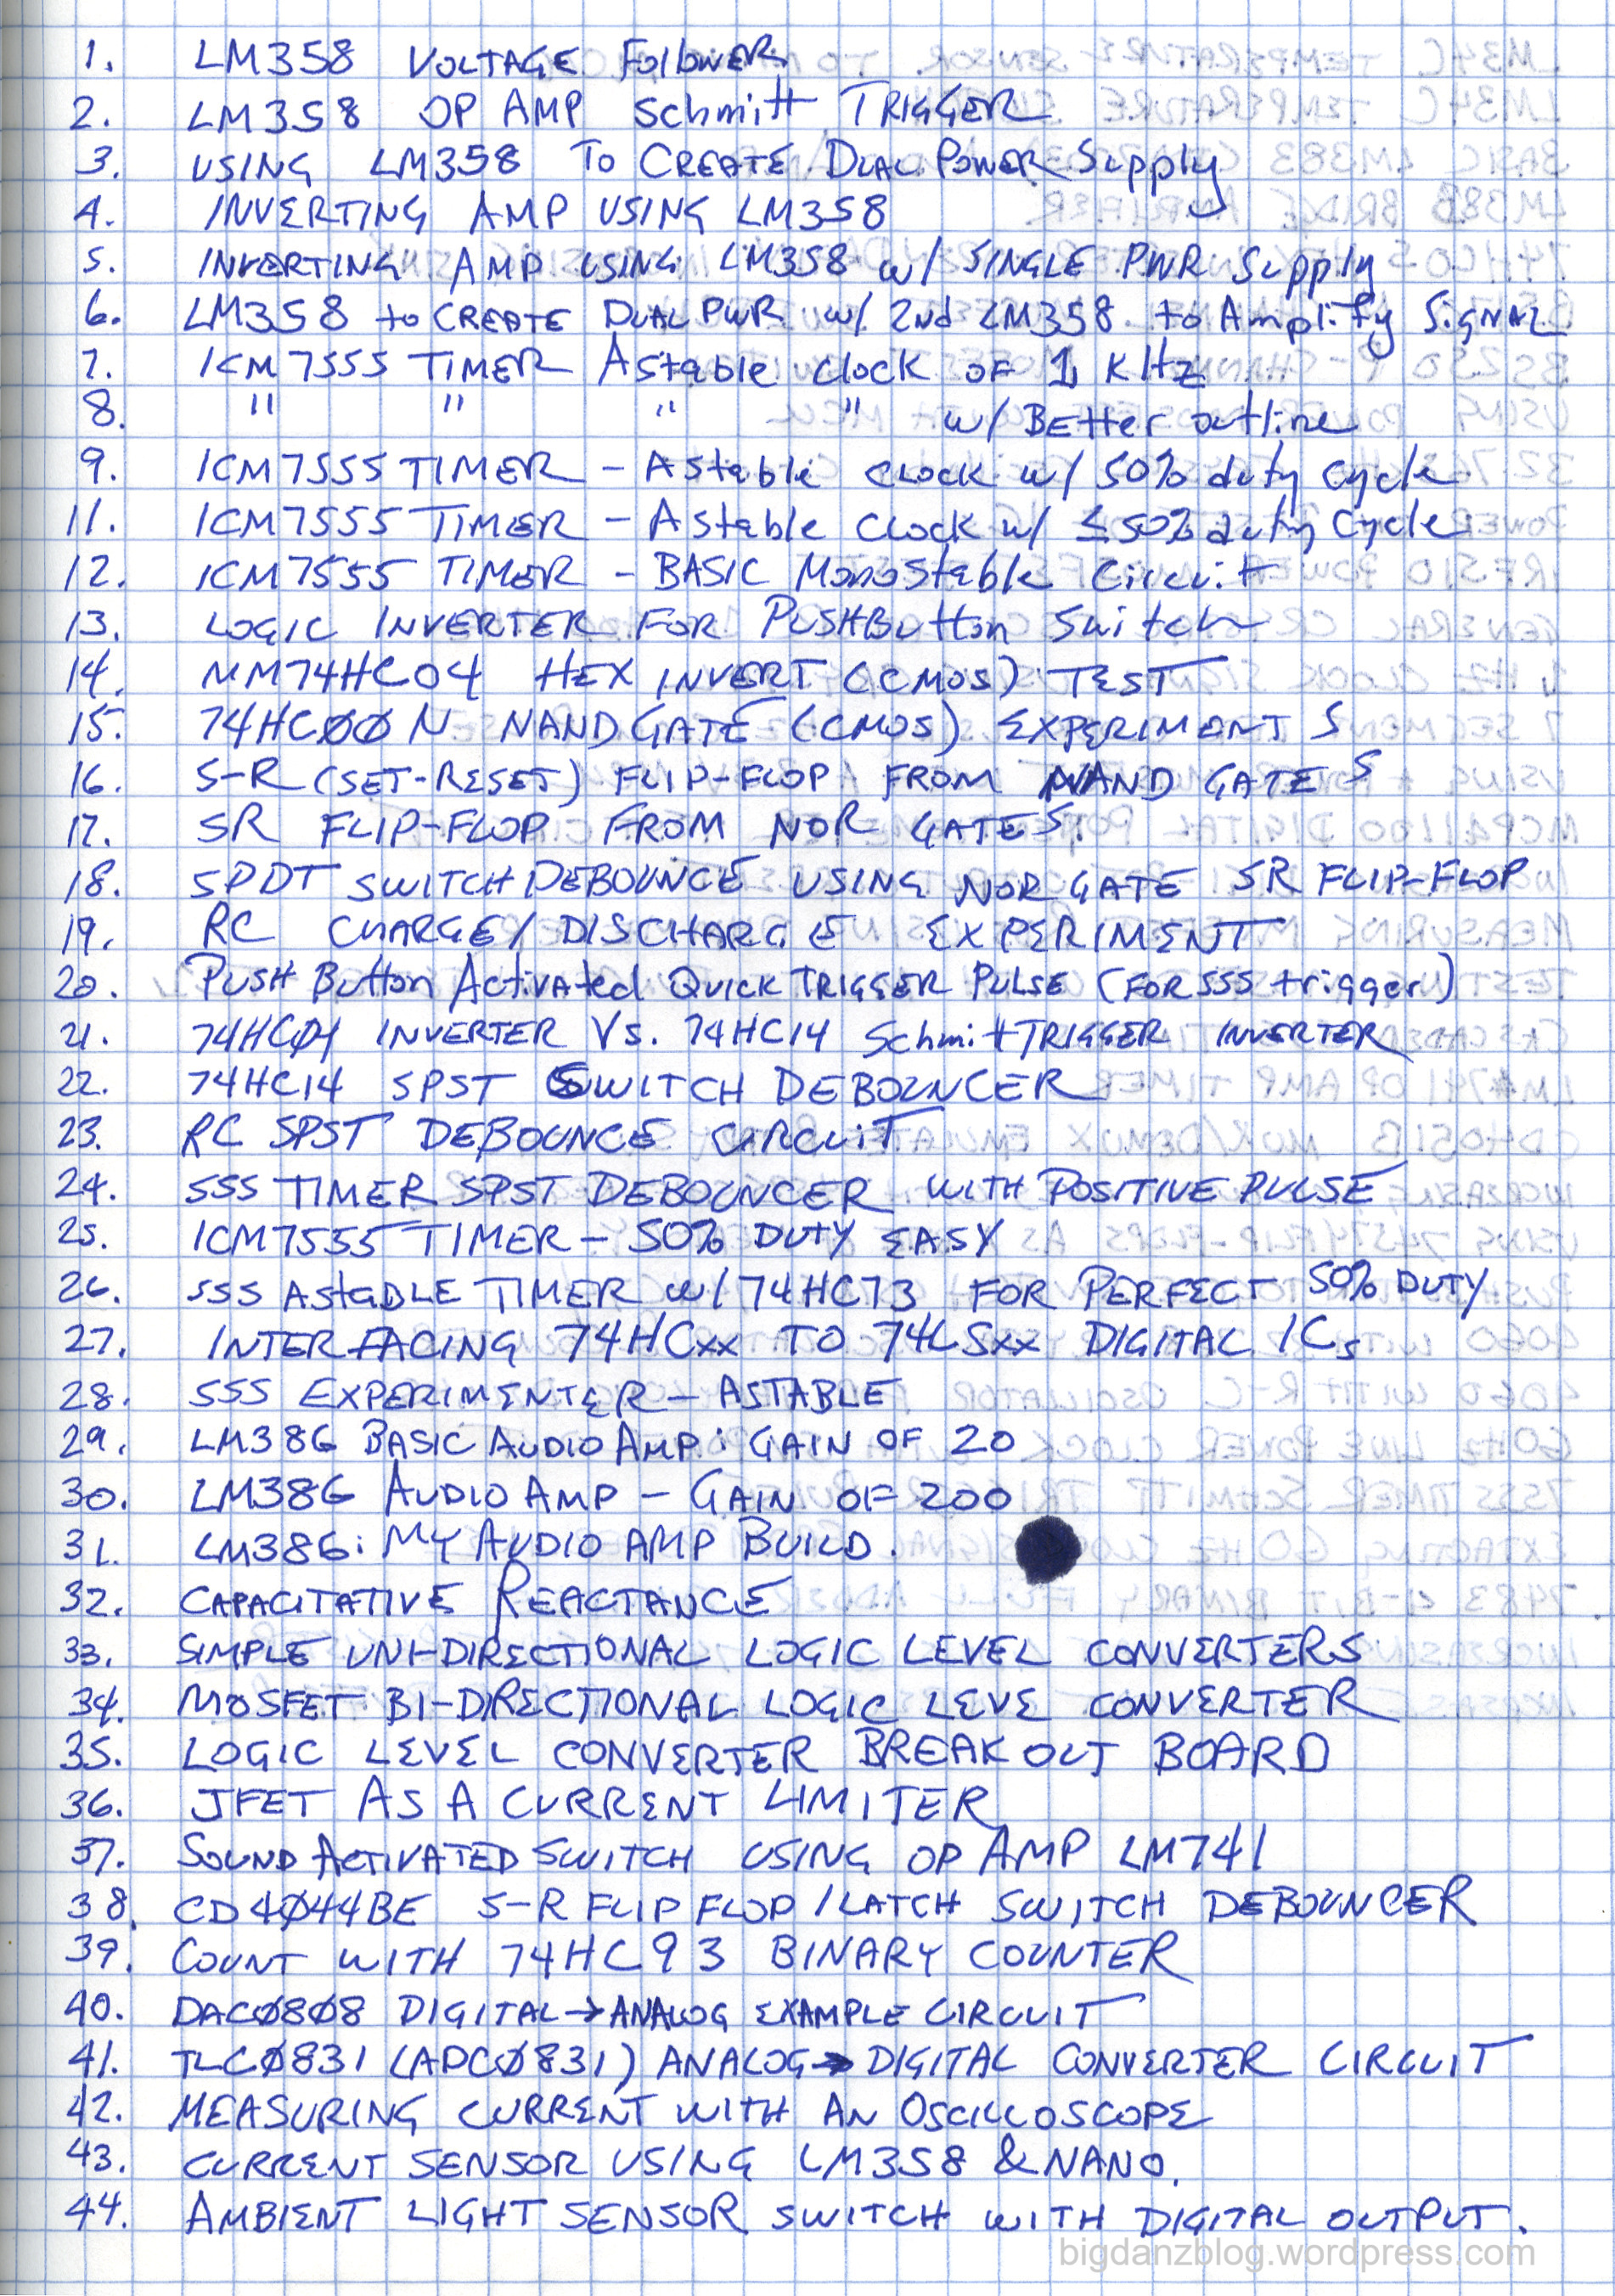 1. LM358 VOLTAGE FollowER
2. LM358 OP AMP Schmitt TRIGGER
3. USING LM358 To CREATE DUAL POWER Supply
4. INVERTING AMP USING LM358
5. INVERTING AMP USING LM358 w/ SINGLE PWR Supply
6. LM358 to CREATE DUAL PWR w/ 2nd LM358 to Amplify SiGNAL
7. ICM7555 TIMER AStable clock OF 1 KHz
8. " " " " w/ BEtter outline
9. ICM7555 TIMER - AStable CLOCK w/ 50% duty Cycle
11. ICM7555 TIMER - AStable Clock w/ ≤50% duty Cycle
12. ICM7555 TIMER - BASIC MonoStable Circuit
13. LOGIC INVERTER FOR PUSHButton Switch
14. MM74HC04 HEX INVERT (CMOS) TEST
15. 74HCØØN NAND GATE (CMOS) EXPERIMENTS
16. S-R (SET-RESET) FLIP-FLOP FROM NAND GATES
17. SR FLIP-FLOP FROM NOR GATES.
18. SPDT SWITCH DEBOUNCE USING NOR GATE SR FLIP-FLOP
19. RC CHARGE/DISCHARGE EXPERIMENT
20. PUSH Button Activated QUICK TRIGGER PULSE (FOR 555 trigger)
21. 74HCØ4 INVERTER VS. 74HC14 Schmitt TRIGGER INVERTER
22. 74HC14 SPST SWITCH DEBOUNCER
23. RC SPST DEBOUNCE CIRCUIT
24. 555 TIMER SPST DEBOUNCER WITH POSITIVE PULSE
25. ICM7555 TIMER - 50% DUTY EASY
26. 555 AStaBLE TIMER w/ 74HC73 FOR PERFECT 50% DUTY
27. INTERFACING 74HCxx TO 74LSxx DIGITAL ICs
28. 555 EXPERIMENTER - ASTABLE
29. LM386 BASIC AUDIO AMP: GAIN OF 20
30. LM386 AUDIO AMP - GAIN OF 200
31. LM386: MY AUDIO AMP BUILD.
32. CAPACITATIVE REACTANCE
33. SIMPLE UNI-DIRECTIONAL LOGIC LEVEL CONVERTERS
34. MOSFET BI-DIRECTIONAL LOGIC LEVE CONVERTER
35. LOGIC LEVEL CONVERTER BREAK OUT BOARD
36. JFET AS A CURRENT LIMITER
37. SOUND ACTIVATED SWITCH USING OP AMP LM741
38. CD4Ø44BE S-R FLIP FLOP/LATCH SWITCH DEBOUNCER
39. COUNT WITH 74HC93 BINARY COUNTER
40. DACØ8Ø8 DIGITAL→ANALOG EXAMPLE CIRCUIT
41. TLCØ831 (ADCØ831) ANALOG→DIGITAL CONVERTER CIRCUIT
42. MEASURING CURRENT WITH AN OSCILLOSCOPE
43. CURRENT SENSOR USING LM358 & NANO.
44. AMBIENT LIGHT SENSOR SWITCH WITH DIGITAL OUTPUT.
bigdanzblog.wordpress.com